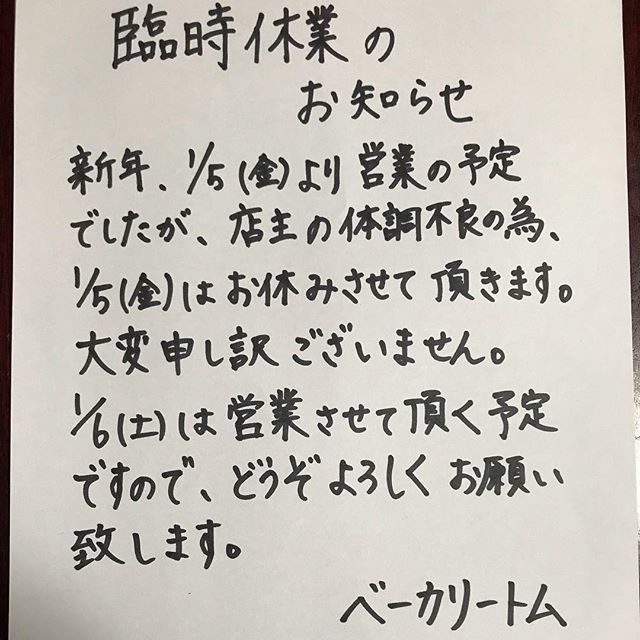 臨時休業の
お知らせ
新年、1/5(金)より営業の予定
でしたが、店主の体調不良の為、
1/5(金)はお休みさせて頂きます。
大変申し訳ございません。
1/6(土)は営業させて頂く予定
ですので、どうぞよろしくお願い
致します。
ベーカリートム